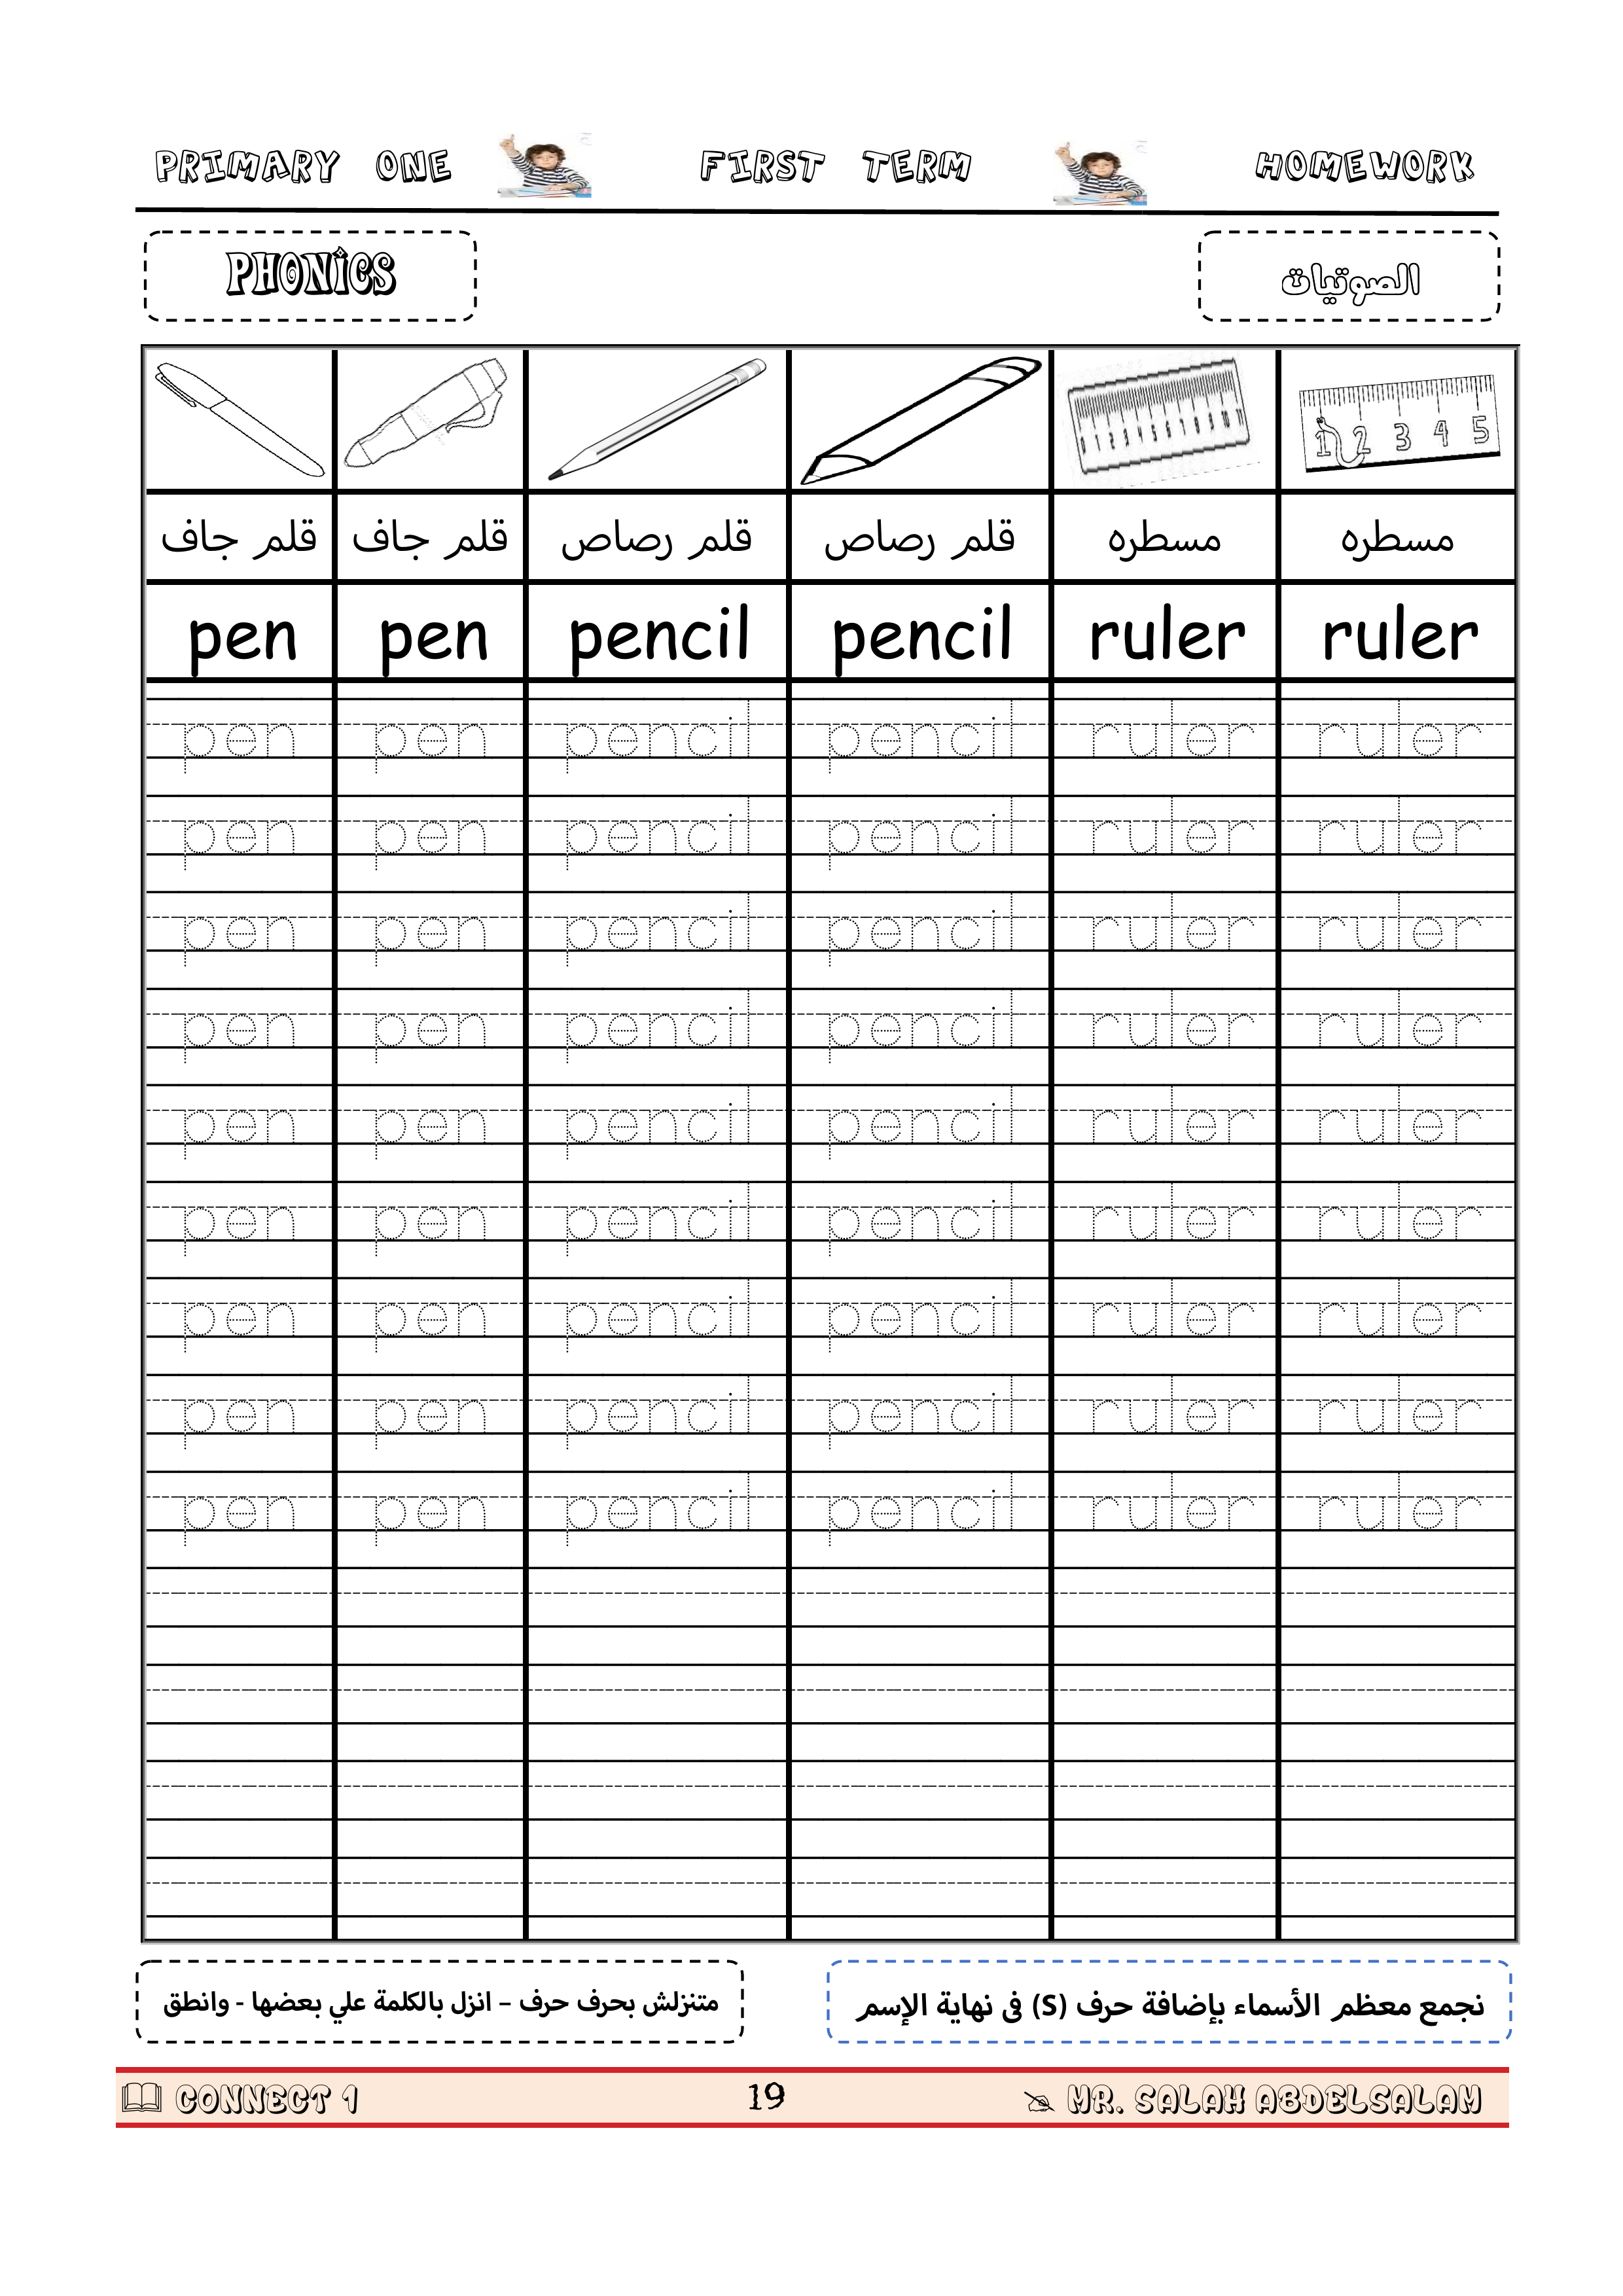 PRIMARY ONE FIRST TERM HOMEWORK
PHONICS الصوتيات
0 1 2 3 4 5 6 7 8 9 10 11 1 2 3 4 5
قلم جاف قلم جاف قلم رصاص قلم رصاص مسطره مسطره
pen pen pencil pencil ruler ruler
pen pen pencil pencil ruler ruler
pen pen pencil pencil ruler ruler
pen pen pencil pencil ruler ruler
pen pen pencil pencil ruler ruler
pen pen pencil pencil ruler ruler
pen pen pencil pencil ruler ruler
pen pen pencil pencil ruler ruler
pen pen pencil pencil ruler ruler
pen pen pencil pencil ruler ruler
متنزلش بحرف حرف – انزل بالكلمة علي بعضها - وانطق
نجمع معظم الأسماء بإضافة حرف (S) فى نهاية الإسم
CONNECT 1 19 MR. SALAH ABDELSALAM